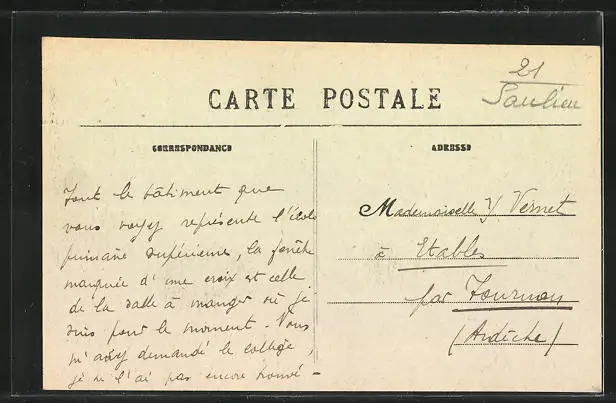 21
Saulieu
CARTE POSTALE
CORRESPONDANCE
ADRESSE
Tout le bâtiment que
vous voyez représente l'école
primaire supérieure, la fenêtre
marquée d'une croix est celle
de la salle à manger où je
suis pour le moment. Vous
m'avez demandé le collège,
je ne l'ai pas encore trouvé -
Mademoiselle Y Vernet
à Etables
par Tournon
(Ardèche)